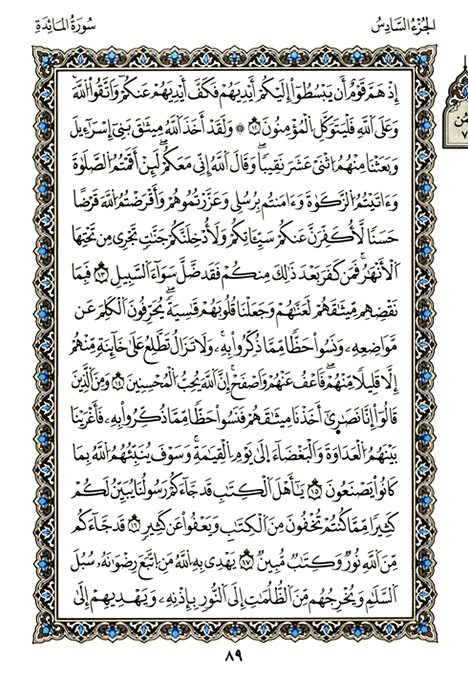 الجُزْءُ السَّادِسُ
سُورَةُ المَائِدَةِ
إِذْ هَمَّ قَوْمٌ أَن يَبْسُطُوٓا۟ إِلَيْكُمْ أَيْدِيَهُمْ فَكَفَّ أَيْدِيَهُمْ عَنكُمْ وَٱتَّقُوا۟ ٱللَّهَ
وَعَلَى ٱللَّهِ فَلْيَتَوَكَّلِ ٱلْمُؤْمِنُونَ ١٢ وَلَقَدْ أَخَذَ ٱللَّهُ مِيثَٰقَ بَنِىٓ إِسْرَٰٓءِيلَ
وَبَعَثْنَا مِنْهُمُ ٱثْنَىْ عَشَرَ نَقِيبًا وَقَالَ ٱللَّهُ إِنِّى مَعَكُمْ لَئِنْ أَقَمْتُمُ ٱلصَّلَوٰةَ
وَءَاتَيْتُمُ ٱلزَّكَوٰةَ وَءَامَنتُم بِرُسُلِى وَعَزَّرْتُمُوهُمْ وَأَقْرَضْتُمُ ٱللَّهَ قَرْضًا
حَسَنًا لَّأُكَفِّرَنَّ عَنكُمْ سَيِّـَٔاتِكُمْ وَلَأُدْخِلَنَّكُمْ جَنَّٰتٍ تَجْرِى مِن تَحْتِهَا
ٱلْأَنْهَٰرُ فَمَن كَفَرَ بَعْدَ ذَٰلِكَ مِنكُمْ فَقَدْ ضَلَّ سَوَآءَ ٱلسَّبِيلِ ١٣ فَبِمَا
نَقْضِهِم مِّيثَٰقَهُمْ لَعَنَّٰهُمْ وَجَعَلْنَا قُلُوبَهُمْ قَٰسِيَةً يُحَرِّفُونَ ٱلْكَلِمَ عَن
مَّوَاضِعِهِۦ وَنَسُوا۟ حَظًّا مِّمَّا ذُكِّرُوا۟ بِهِۦ وَلَا تَزَالُ تَطَّلِعُ عَلَىٰ خَآئِنَةٍ مِّنْهُمْ
إِلَّا قَلِيلًا مِّنْهُمْ فَٱعْفُ عَنْهُمْ وَٱصْفَحْ إِنَّ ٱللَّهَ يُحِبُّ ٱلْمُحْسِنِينَ ١٤ وَمِنَ ٱلَّذِينَ
قَالُوٓا۟ إِنَّا نَصَٰرَىٰٓ أَخَذْنَا مِيثَٰقَهُمْ فَنَسُوا۟ حَظًّا مِّمَّا ذُكِّرُوا۟ بِهِۦ فَأَغْرَيْنَا
بَيْنَهُمُ ٱلْعَدَاوَةَ وَٱلْبَغْضَآءَ إِلَىٰ يَوْمِ ٱلْقِيَٰمَةِ وَسَوْفَ يُنَبِّئُهُمُ ٱللَّهُ بِمَا
كَانُوا۟ يَصْنَعُونَ ١٥ يَٰٓأَهْلَ ٱلْكِتَٰبِ قَدْ جَآءَكُمْ رَسُولُنَا يُبَيِّنُ لَكُمْ
كَثِيرًا مِّمَّا كُنتُمْ تُخْفُونَ مِنَ ٱلْكِتَٰبِ وَيَعْفُوا۟ عَن كَثِيرٍ ١٦ قَدْ جَآءَكُم
مِّنَ ٱللَّهِ نُورٌ وَكِتَٰبٌ مُّبِينٌ ١٧ يَهْدِى بِهِ ٱللَّهُ مَنِ ٱتَّبَعَ رِضْوَٰنَهُۥ سُبُلَ
ٱلسَّلَٰمِ وَيُخْرِجُهُم مِّنَ ٱلظُّلُمَٰتِ إِلَى ٱلنُّورِ بِإِذْنِهِۦ وَيَهْدِيهِمْ إِلَىٰ
٨٩